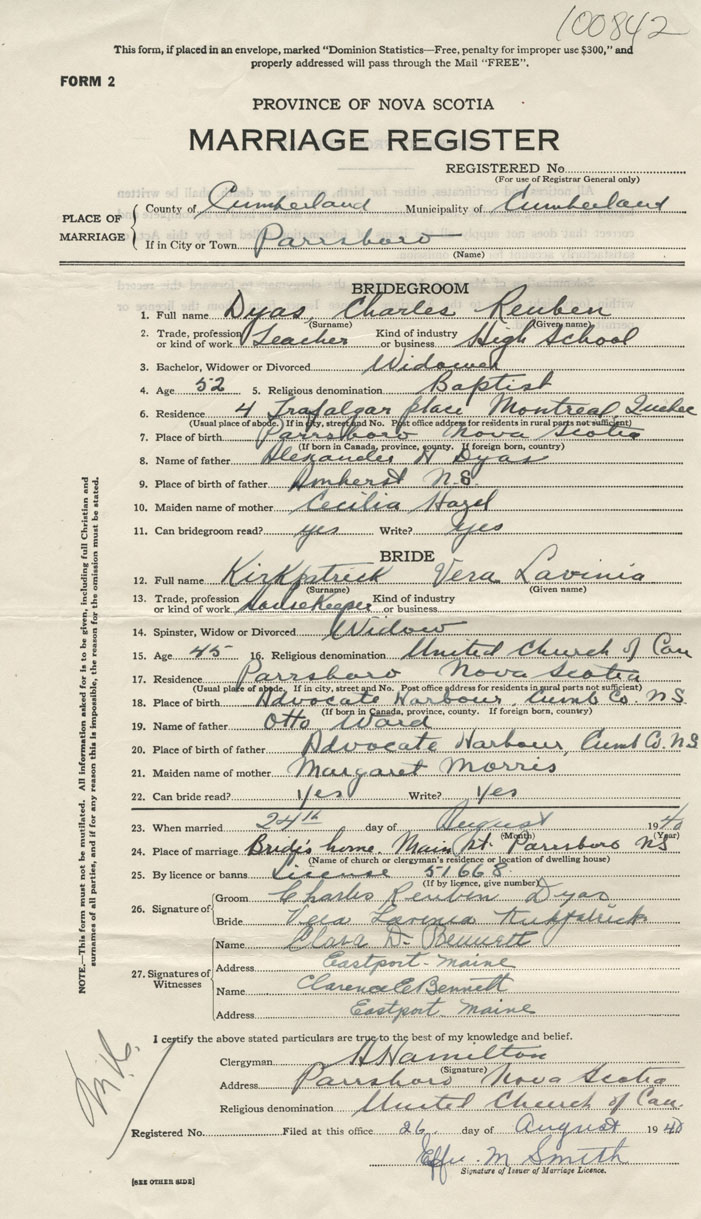 100842
This form, if placed in an envelope, marked "Dominion Statistics—Free, penalty for improper use $300," and
properly addressed will pass through the Mail "FREE".
FORM 2
PROVINCE OF NOVA SCOTIA
MARRIAGE REGISTER
REGISTERED No.
(For use of Registrar General only)
PLACE OF MARRIAGE
County of Cumberland Municipality of Cumberland
If in City or Town Parrsboro
(Name)
BRIDEGROOM
1. Full name Dyas, Charles Reuben
(Surname) (Given name)
2. Trade, profession or kind of work Teacher Kind of industry or business High School
3. Bachelor, Widower or Divorced Widower
4. Age 52 5. Religious denomination Baptist
6. Residence 4 Trafalgar place Montreal, Quebec
(Usual place of abode. If in city, street and No. Post office address for residents in rural parts not sufficient)
7. Place of birth Parrsboro Nova Scotia
(If born in Canada, province, county. If foreign born, country)
8. Name of father Alexander H Dyas
9. Place of birth of father Amherst N.S.
10. Maiden name of mother Cecilia Hazel
11. Can bridegroom read? yes Write? yes
BRIDE
12. Full name Kirkpatrick Vera Lavinia
(Surname) (Given name)
13. Trade, profession or kind of work Housekeeper Kind of industry or business
14. Spinster, Widow or Divorced Widow
15. Age 45 16. Religious denomination United Church of Can
17. Residence Parrsboro Nova Scotia
(Usual place of abode. If in city, street and No. Post office address for residents in rural parts not sufficient)
18. Place of birth Advocate Harbour, Cumb Co. N.S.
(If born in Canada, province, county. If foreign born, country)
19. Name of father Otto Ward
20. Place of birth of father Advocate Harbour, Cumb Co. N.S
21. Maiden name of mother Margaret Morris
22. Can bride read? Yes Write? Yes
23. When married 24th day of August 1940
(Month) (Year)
24. Place of marriage Bride's home, Main st. Parrsboro NS
(Name of church or clergyman's residence or location of dwelling house)
25. By licence or banns License 51668
(If by licence, give number)
26. Signature of
Groom Charles Reuben Dyas
Bride Vera Lavinia Kirkpatrick
27. Signatures of Witnesses
Name Clara D. Bennett
Address Eastport-Maine
Name Clarence E Bennett
Address Eastport Maine
I certify the above stated particulars are true to the best of my knowledge and belief.
Clergyman Hamilton
(Signature)
Address Parrsboro Nova Scotia
Religious denomination United Church of Can.
Registered No. Filed at this office 26 day of August 1940
Effie M Smith
Signature of Issuer of Marriage Licence.
[SEE OTHER SIDE]
NOTE.—This form must not be mutilated. All information asked for is to be given, including full Christian and
surnames of all parties, and if for any reason this is impossible, the reason for the omission must be stated.